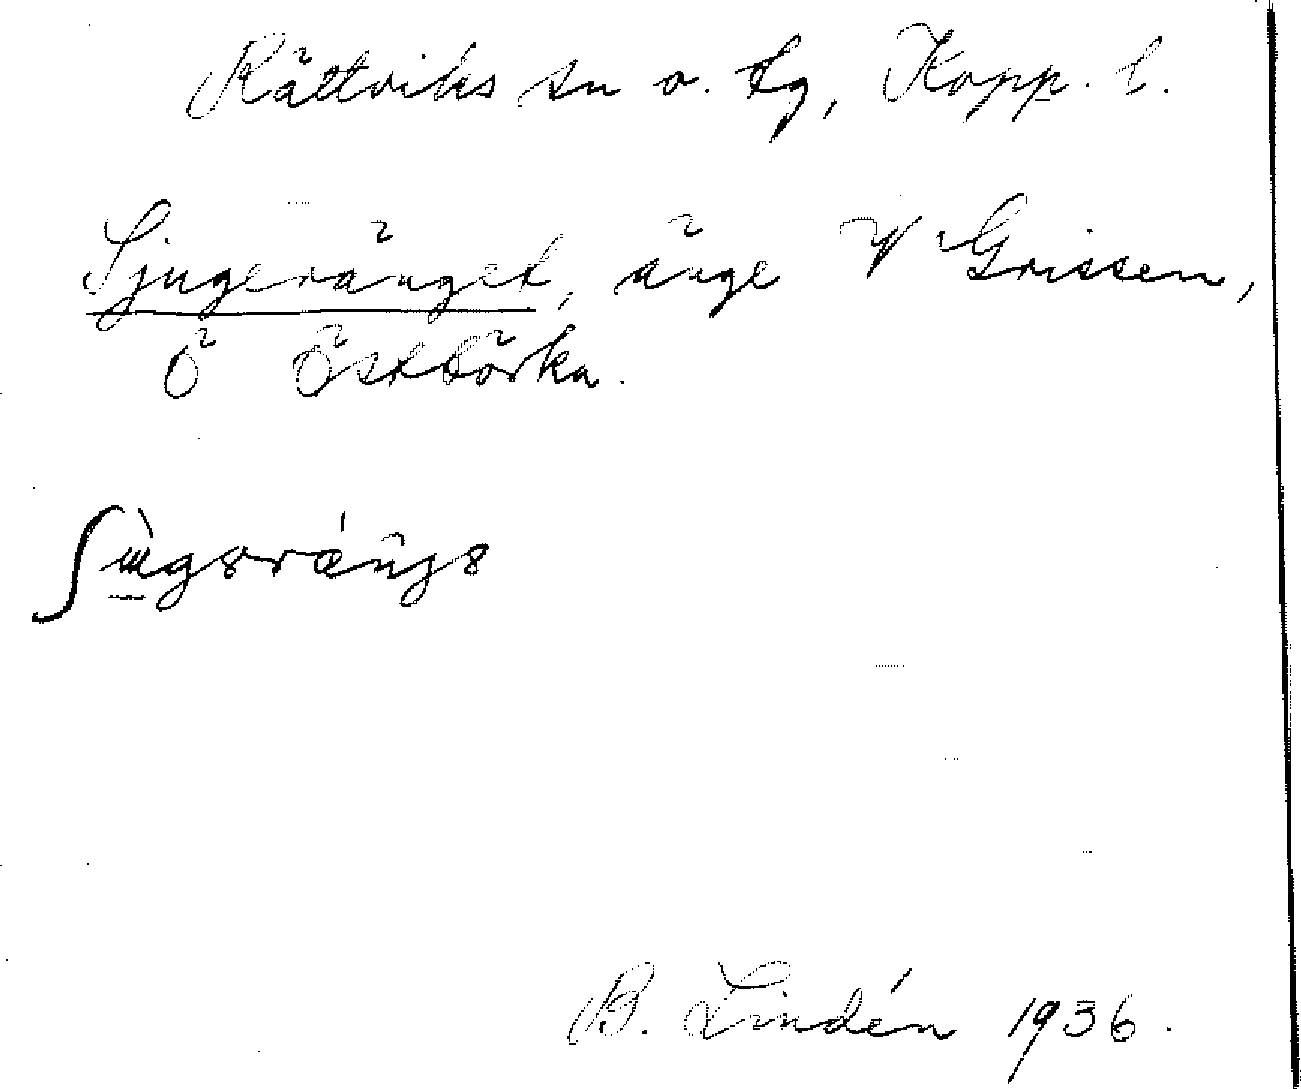 Rättviks sn o. tg, Kopp. l.
Sjugeränget, änge V Grissen,
Ö Östbörka.
B. Lindén 1936.